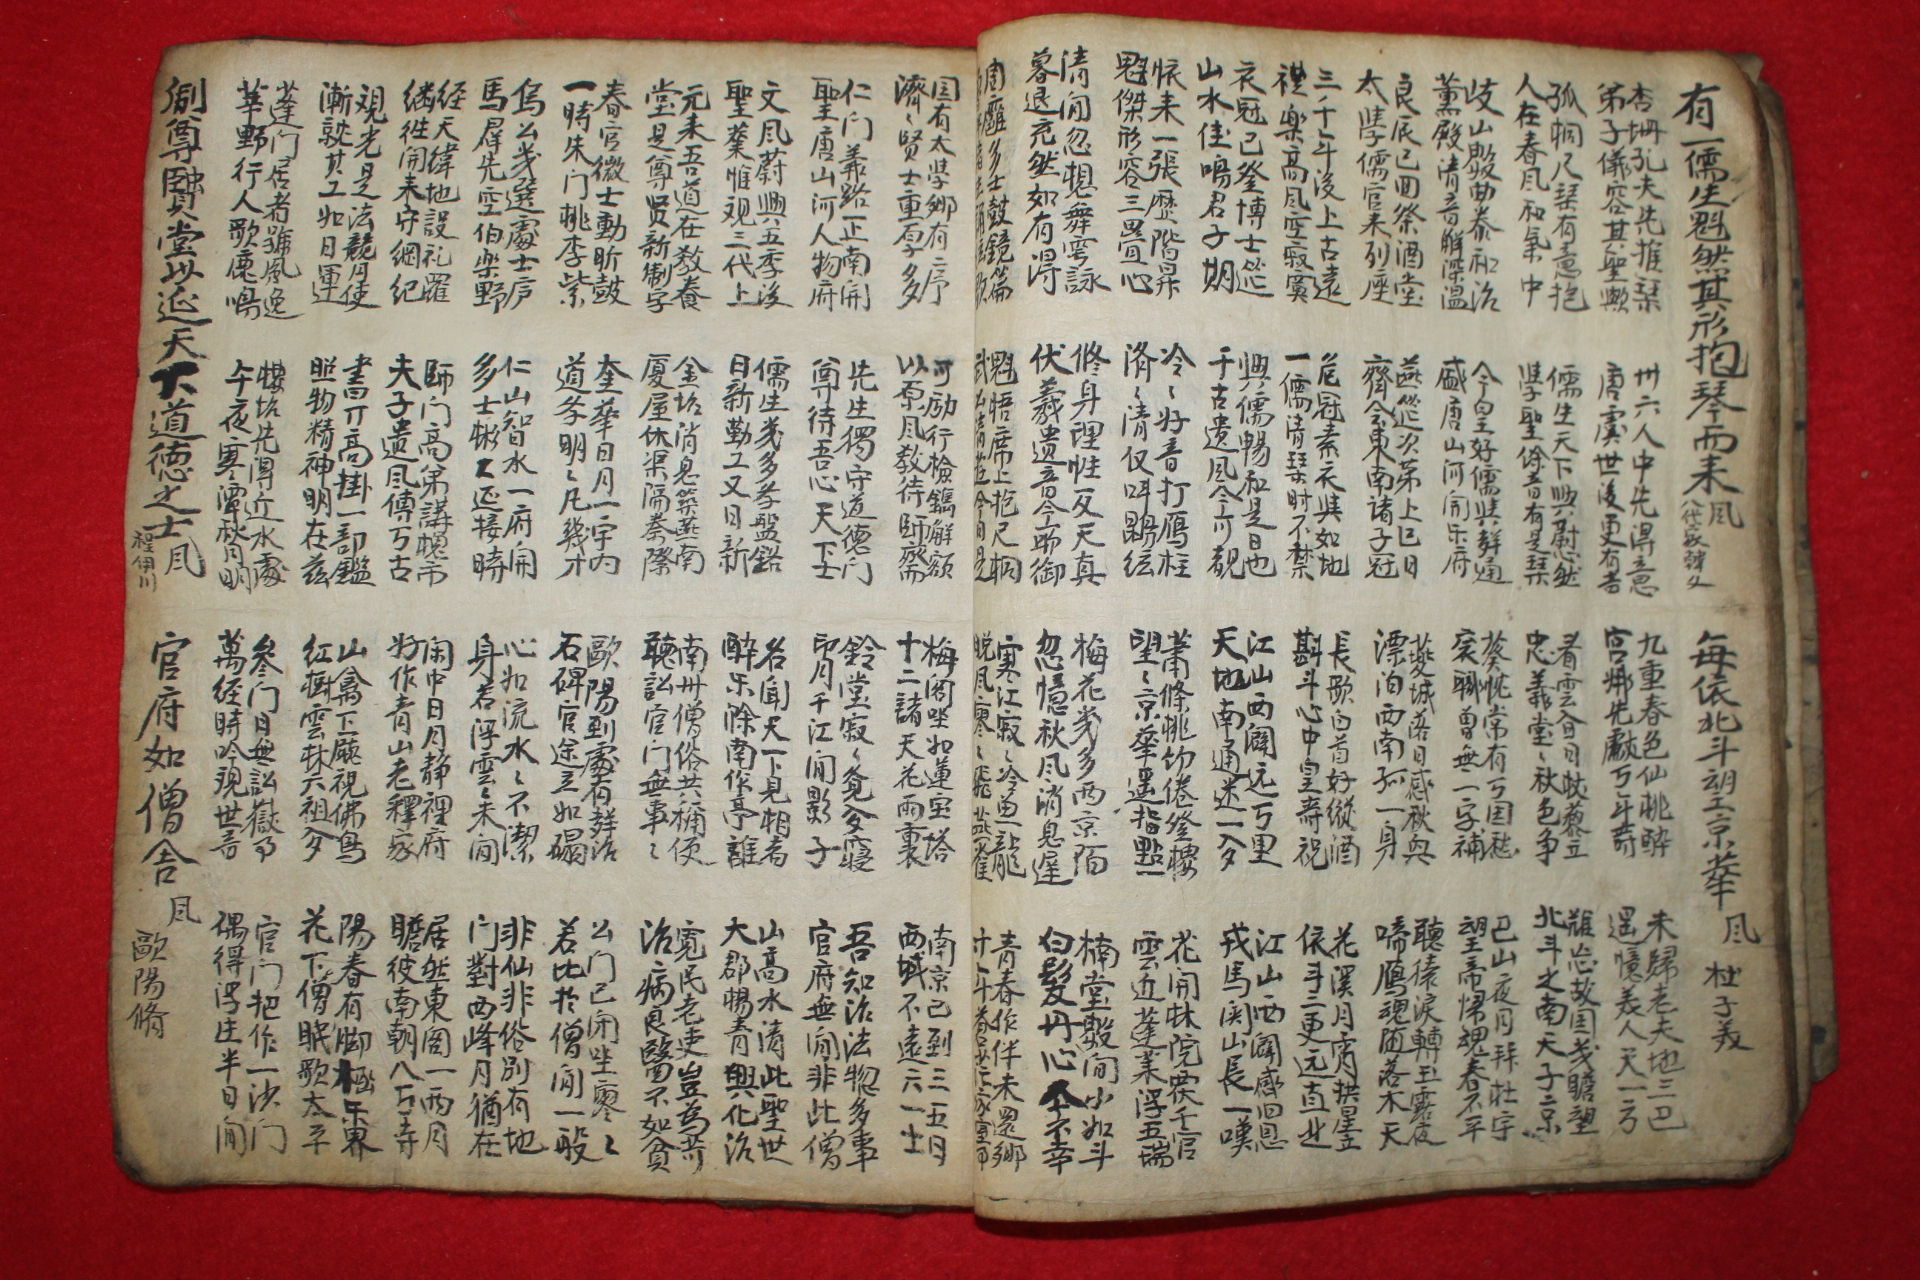 有一儒生魁然其形抱琴而来 風
杏坍孔夫先推琴
弟子儀容其聖歟
孤桐八琴有意抱
人在春風和氣中
岐山殿曲泰和治
薰殿清音解深溫
良辰已回祭酒堂
太學儒官來列座
三千年後上古遠
禮樂高風空寂寞
衣冠已登博士筵
山水佳鳴君子期
恢来一張歷階昇
魁傑形容三疊心
清閒忽想舞雩詠
暮退充然如有得
卅六人中先得意
唐虞世後更有着
儒生天下興慰然
學聖餘音有是琴
今皇好儒與群通
盛唐山河開乐府
燕筵次第上巳日
齊會東南諸子冠
危冠素衣與如地
一儒清琴时不禁
興儒暢和是日也
千古遺風今可覩
冷々好音打鴈柱
濟々清仪叫鵾絃
修身理性反天真
伏羲遺音今助御
魁悟席上抱尺桐
每依北斗望京華 風 杜子美
九重春色仙桃醉
宫娜先獻万年壽
看雲今日杖藜立
忠義堂々秋色争
葵忱常有万国愁
侯聊曾無一字補
蕪城落日感秋興
漂泊西南孤一身
長歌白首好縱酒
斟斗心中皇壽祝
江山西闊远万里
天地南通迷一夕
蕭條桃竹倦登樓
望々京華遥指點
梅花幾多两京陌
忽憶秋風消息遲
寒江寂々冷魚龍
未歸老夫地三巴
遥憶美人天一方
難忘故国幾瞻望
北斗之南天子京
巴山夜月拜杜宇
望帝歸魂春不平
聽猿淚轉玉露夜
啼鴈魂随落木天
花溪月宵拱星立
依斗三更远直北
江山西闊感旧恩
戎馬関山長一嘆
花開林院衆千官
雲近蓬莱浮五瑞
楠堂數間小如斗
白髮丹心今不幸
青春作伴未還鄉
国有太學鄉有序
濟々賢士重原多
仁门義路正南開
聖唐山河人物府
文風蔚興五季後
聖業惟观三代上
元来吾道在教養
堂是尊贤新制字
春官徵士動昕鼓
一時朱门桃李紫
烏公幾選處士庐
馬群先空伯樂野
経天緯地設礼羅
继往開来守綱紀
观光是法競月使
漸就其工如日運
蓬门居者號風逸
莘野行人歌鹿鳴
創尊賢堂以延天下道德之士 風 程伊川
可励行檢鐫解额
以原風教待師齋
先生獨守道德门
尊待吾心天下士
儒生幾多孝盤銘
日新勤工又日新
金坮消息築燕南
廈屋休渠隔秦際
奎華日月一宇内
道孝明々凡幾才
仁山智水一府開
多士彬々延接時
師门高弟講槐市
夫子遺風傳万古
書曰丌高掛一部鑑
照物精神明在茲
樓坮先得近水處
午夜寒潭秋月明
梅阁坐如蓮宝塔
十二諸天花雨裏
鈴堂寂々免參寢
印月千江閒影子
名闻天下見相者
醉乐滁南作亭誰
南州僧俗共稱便
聽訟官门無事々
歐陽到處有群治
石碑官途立如碣
心如流水々不潔
身若浮雲々未閒
閑中日月静裡府
好作青山老釋家
山禽下廳視佛鳥
红樹雲林六祖夕
參门日無訟獄事
萬経時吟視世音
官府如僧舍 風 歐陽脩
南京已到三五月
西城不遠六一士
吾知治法惣多事
官府無閒非此僧
山高水清此聖世
大郡楊青興化治
寬民老吏豈為苛
治病良醫不如貧
公门已闭坐寥々
若比於僧閒一般
非仙非俗別有地
门對西峰月猶在
居然東阁一两月
瞻彼南朝八万寺
陽春有脚極乐界
花下僧眠歌太平
官门把作一沙门
偶得浮生半日閒